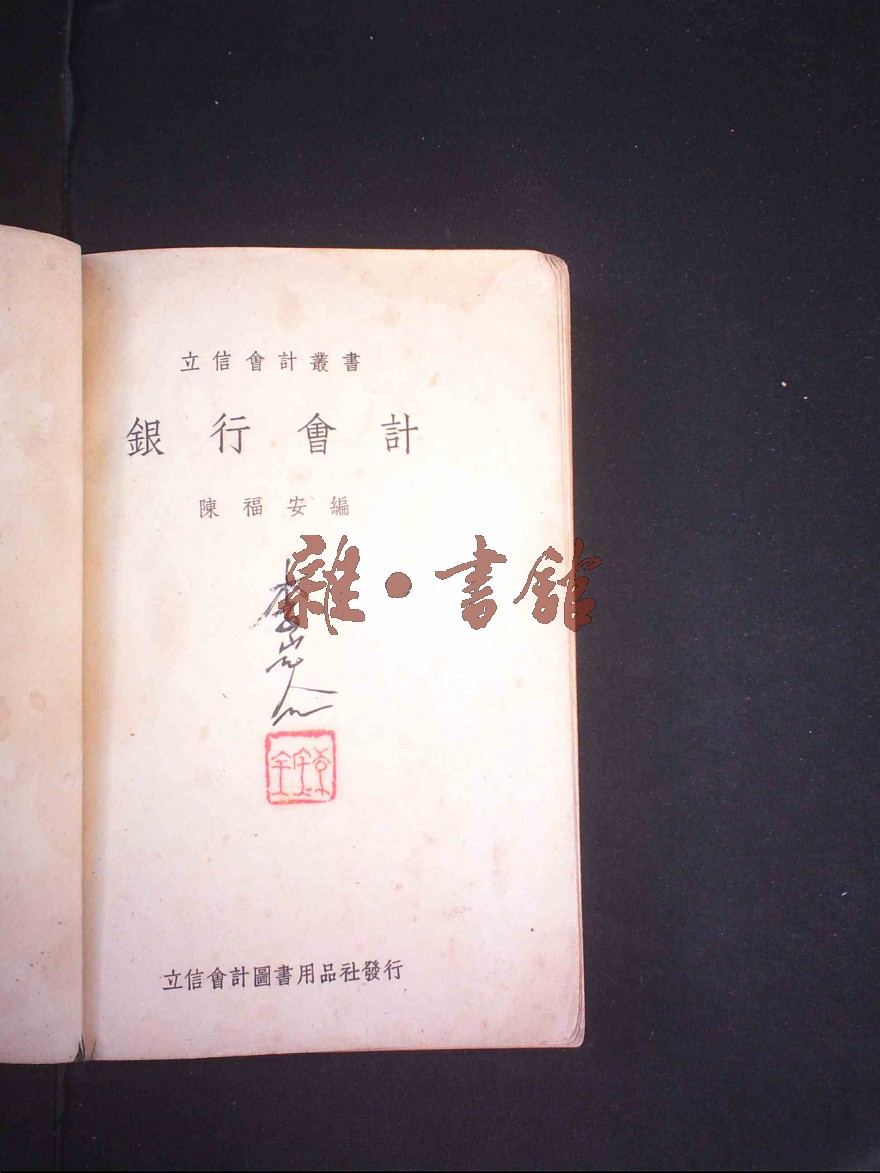 立信會計叢書
銀行會計
陳福安編
雜·書館
立信會計圖書用品社發行